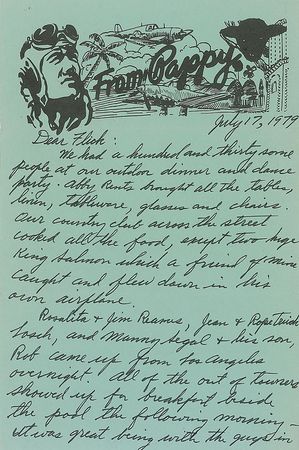 From Pappy
July 17, 1979
Dear Flick:
We had a hundred and thirty some
people at our outdoor dinner and dance
party. Abby Rents brought all the tables,
linen, tableware, glasses and chairs.
Our country club across the street
cooked all the food, except two huge
King Salmon which a friend of mine
caught and flew down in his
own airplane.
Rosalita & Jim Reams, Jean &
Losch, and Manny Segal & his son,
Rob came up from Los Angeles
overnight. All of the out of towners
showed up for breakfast beside
the pool the following morning -
it was great being with the guys in